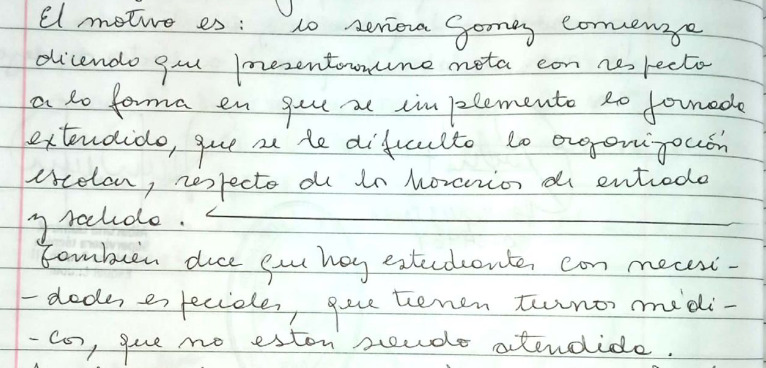 El motivo es: la señora Gomez comienza
diciendo que presentaron una nota con respecto
a la forma en que se implementa la jornada
extendida, que se le dificulta la organización
escolar, respecto de los horarios de entrada
y salida.
También dice que hay estudiantes con necesi-
-dades especiales, que tienen turnos médi-
-cos, que no están siendo atendida.